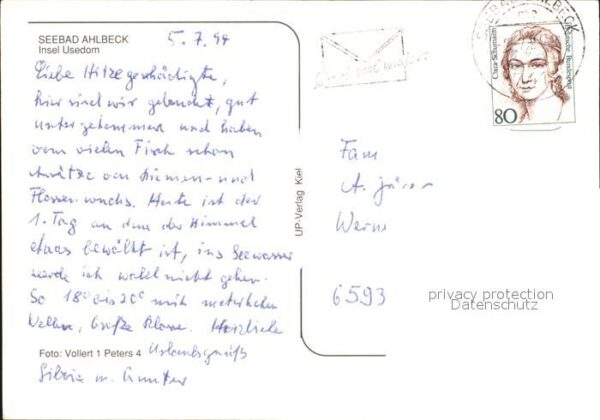 SEEBAD AHLBECK
Insel Usedom
5.7.94
Liebe Hitzegeschädigte,
hier sind wir gelandet, gut
untergekommen und haben
vom vielen Fisch schon
Ansätze von Kiemen- und
Flossenwuchs. Heute ist der
1. Tag an dem der Himmel
etwas bewölkt ist, ins Seewasser
werde ich wohl nicht gehen.
So 18° bis 20° mit
Wellen, Große Klasse. Herzliche
Urlaubsgrüße
Silvia u. Gunter
Foto: Vollert 1 Peters 4
UP-Verlag Kiel
SEEBAD AHLBECK
Clara Schumann
Deutsche Bundespost
80
Fam
A.
Werne
6593
privacy protection
Datenschutz